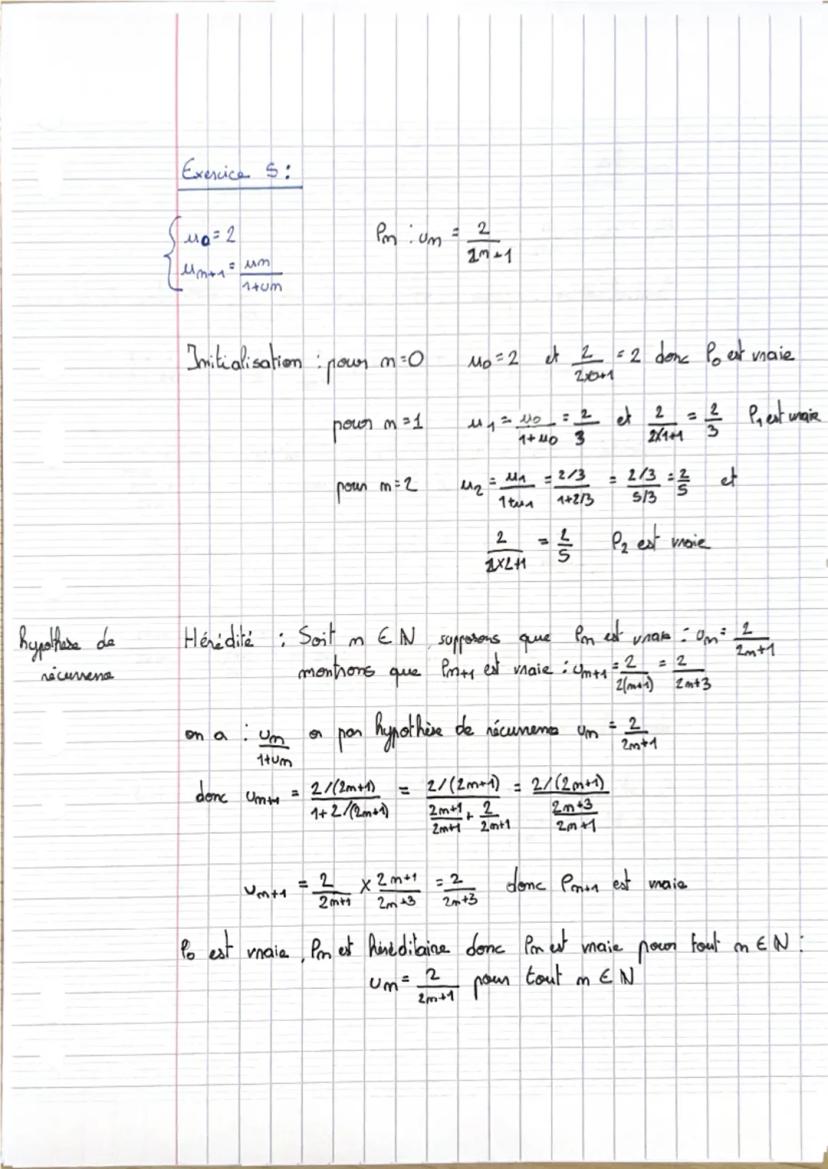 Exercice 5 :
{ u0 = 2      Pn : un = 2/(2n+1)
un+1 = un/(1+un)
Initialisation : pour n=0   u0 = 2 et 2/(2x0+1) = 2 donc P0 est vraie
pour n=1   u1 = u0/(1+u0) = 2/3 et 2/(2x1+1) = 2/3 P1 est vraie
pour n=2   u2 = u1/(1+u1) = (2/3)/(1+2/3) = (2/3)/(5/3) = 2/5 et
2/(2x2+1) = 2/5   P2 est vraie
hypothèse de récurrence
Hérédité : Soit n ∈ N, supposons que Pn est vraie : un = 2/(2n+1)
montrons que Pn+1 est vraie : un+1 = 2/(2(n+1)) = 2/(2n+3)
on a : un/(1+un) or par hypothèse de récurrence un = 2/(2n+1)
donc un+1 = (2/(2n+1))/(1+2/(2n+1)) = (2/(2n+1))/((2n+1)/(2n+1) + 2/(2n+1)) = (2/(2n+1))/((2n+3)/(2n+1))
un+1 = 2/(2n+1) x (2n+1)/(2n+3) = 2/(2n+3) donc Pn+1 est vraie
P0 est vraie, Pn est héréditaire donc Pn est vraie pour tout n ∈ N :
un = 2/(2n+1) pour tout n ∈ N